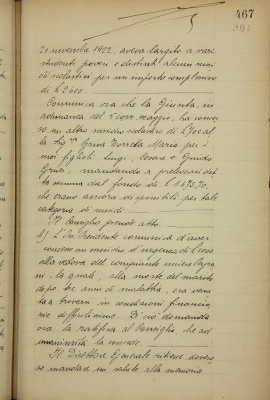 467
21 novembre 1922, aveva largito a vari
studenti poveri e distinti alcuni sussi
di scolastici per un importo complessivo
di £ 2600.
Comunica ora che la Giunta, in
adunanza del 2 corr. maggio, ha conces
so un altro sussidio scolastro di £ 700 al
la Sig.ra Maria per i
suoi figlioli Luigi, Cesare e Guido
mandando a prelevarsi det
ta somma dal fondo di £
che erano ancora disponibili per tale
categoria di sussidi.
Il Consiglio prende atto.
Il Sig. Presidente comunica d'aver
concesso un sussidio d'urgenza di £ 1000
alla vedova del compianto
la quale, alla morte del marito
dopo tre anni di malattia, era venu
ta a trovarsi in condizioni finanzia
rie difficilissime. Di ciò domanda
ora la ratifica al Consiglio, che ad
unanimità la concede.
Il Direttore Generale ritiene dovero
so mandare un saluto alla memoria